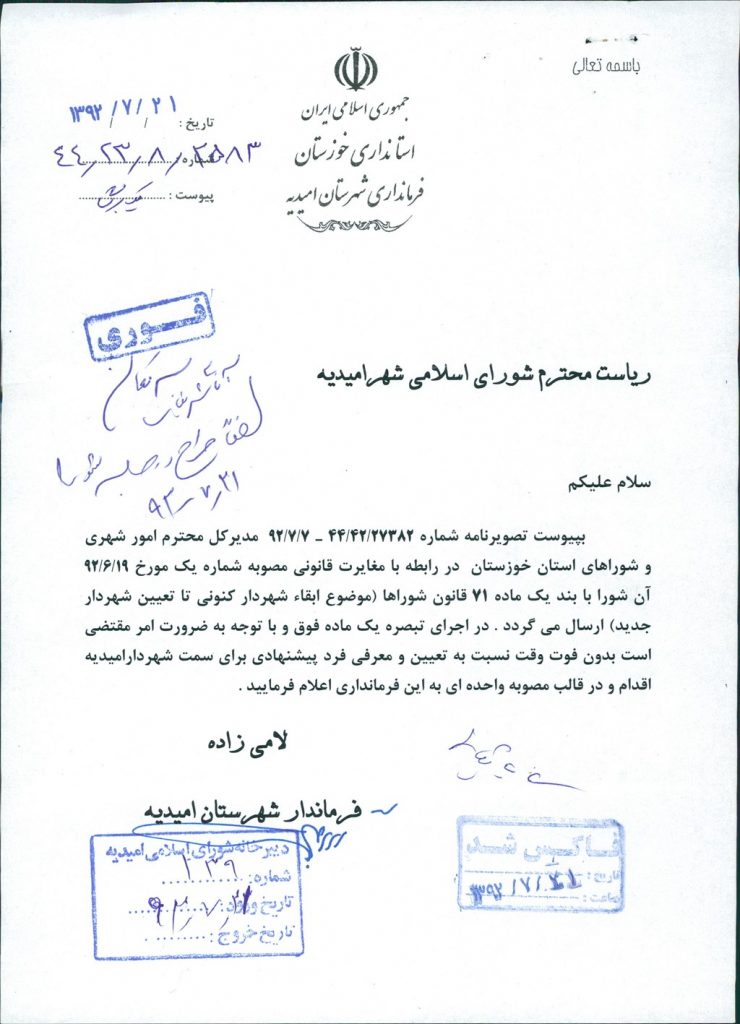 باسمه تعالی
جمهوری اسلامی ایران
استانداری خوزستان
فرمانداری شهرستان امیدیه
تاریخ : ۱۳۹۲/۷/۲۱
شماره
پیوست :
فوری
ریاست محترم شورای اسلامی شهرامیدیه
سلام علیکم
بپیوست تصویرنامه شماره ۴۴/۴۲/۲۷۳۸۲ – ۹۲/۷/۷ مدیرکل محترم امور شهری
و شوراهای استان خوزستان در رابطه با مغایرت قانونی مصوبه شماره یک مورخ ۹۲/۶/۱۹
آن شورا با بند یک ماده ۷۱ قانون شوراها (موضوع ابقاء شهردار کنونی تا تعیین شهردار
جدید) ارسال می گردد . در اجرای تبصره یک ماده فوق و با توجه به ضرورت امر مقتضی
است بدون فوت وقت نسبت به تعیین و معرفی فرد پیشنهادی برای سمت شهردارامیدیه
اقدام و در قالب مصوبه واحده ای به این فرمانداری اعلام فرمایید .
لامی زاده
فرماندار شهرستان امیدیه
دبیرخانه شورای اسلامی امیدیه
شماره: ۱۳۹
تاریخ ورود:
تاریخ خروج :
فاکس شد
تاریخ : ۱۳۹۲/۷/۲۱
ساعت :